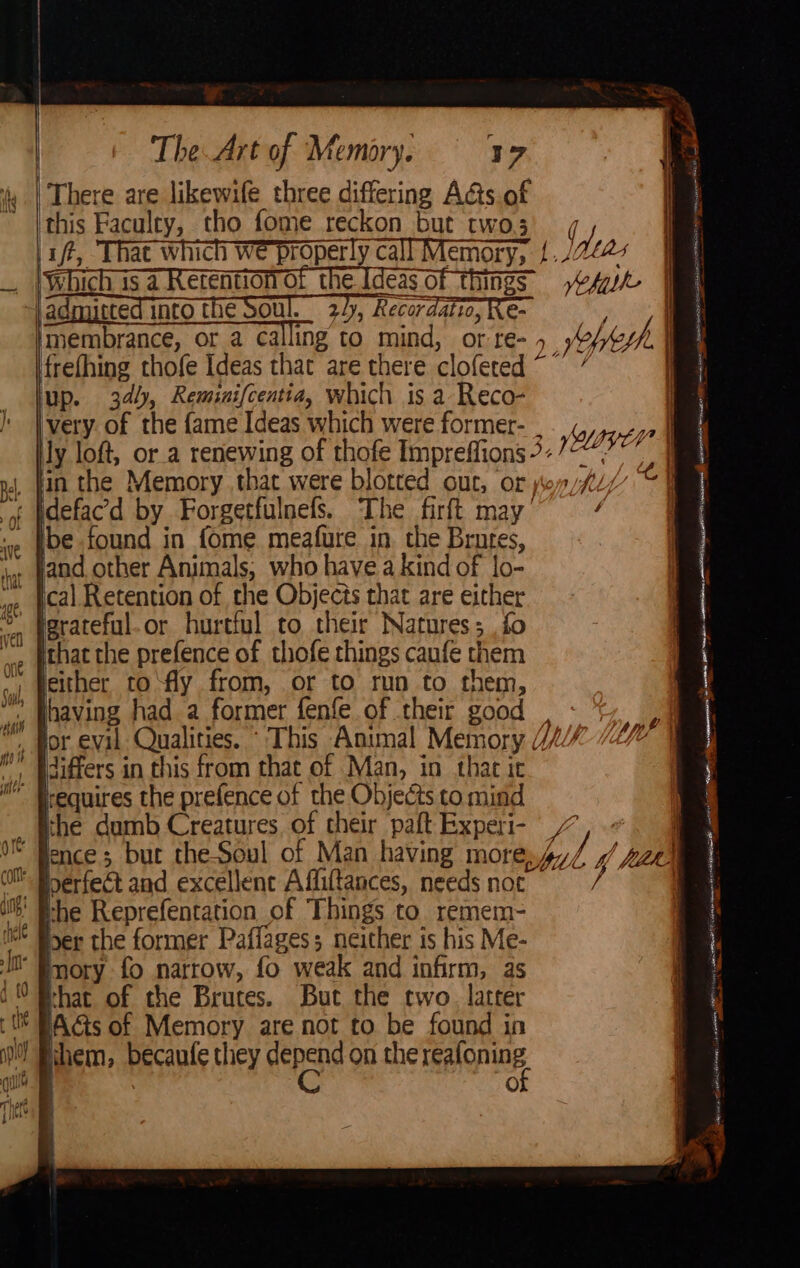 The Art of Memory. 17
There are likewiſe three differing Acts of
this Faculty, tho ſome reckon but two;
1ſt, That which we properly call Memory,
which is a Retention of the Ideas of things
admitted into the Soul. 2ly, Recordatio, Re-
membrance, or a calling to mind, or re-
freſhing thoſe Ideas that are there cloſeted
up. 3dly, Reminiſcentia, which is a Reco-
very of the ſame Ideas which were former-
ly loſt, or a renewing of thoſe Impreſſions
in the Memory that were blotted out, or
defac'd by Forgetfulneſs. The firſt may
be found in ſome meaſure in the Brutes,
and other Animals, who have a kind of lo-
cal Retention of the Objects that are either
grateful or hurtful to their Natures; ſo
that the preſence of thoſe things cauſe them
either to fly from, or to run to them,
having had a former ſenſe of their good
or evil Qualities. This Animal Memory
differs in this from that of Man, in that it
requires the preſence of the Objects to mind
the dumb Creatures of their paſt Experi-
ence; but the Soul of Man having more
perfect and excellent Aſſiſtances, needs not
the Repreſentation of Things to remem-
ber the former Paſſages; neither is his Me-
mory ſo narrow, ſo weak and infirm, as
that of the Brutes. But the two latter
Acts of Memory are not to be found in
them, becauſe they depend on the reaſoning
C of
1. Ideas
2 refresh